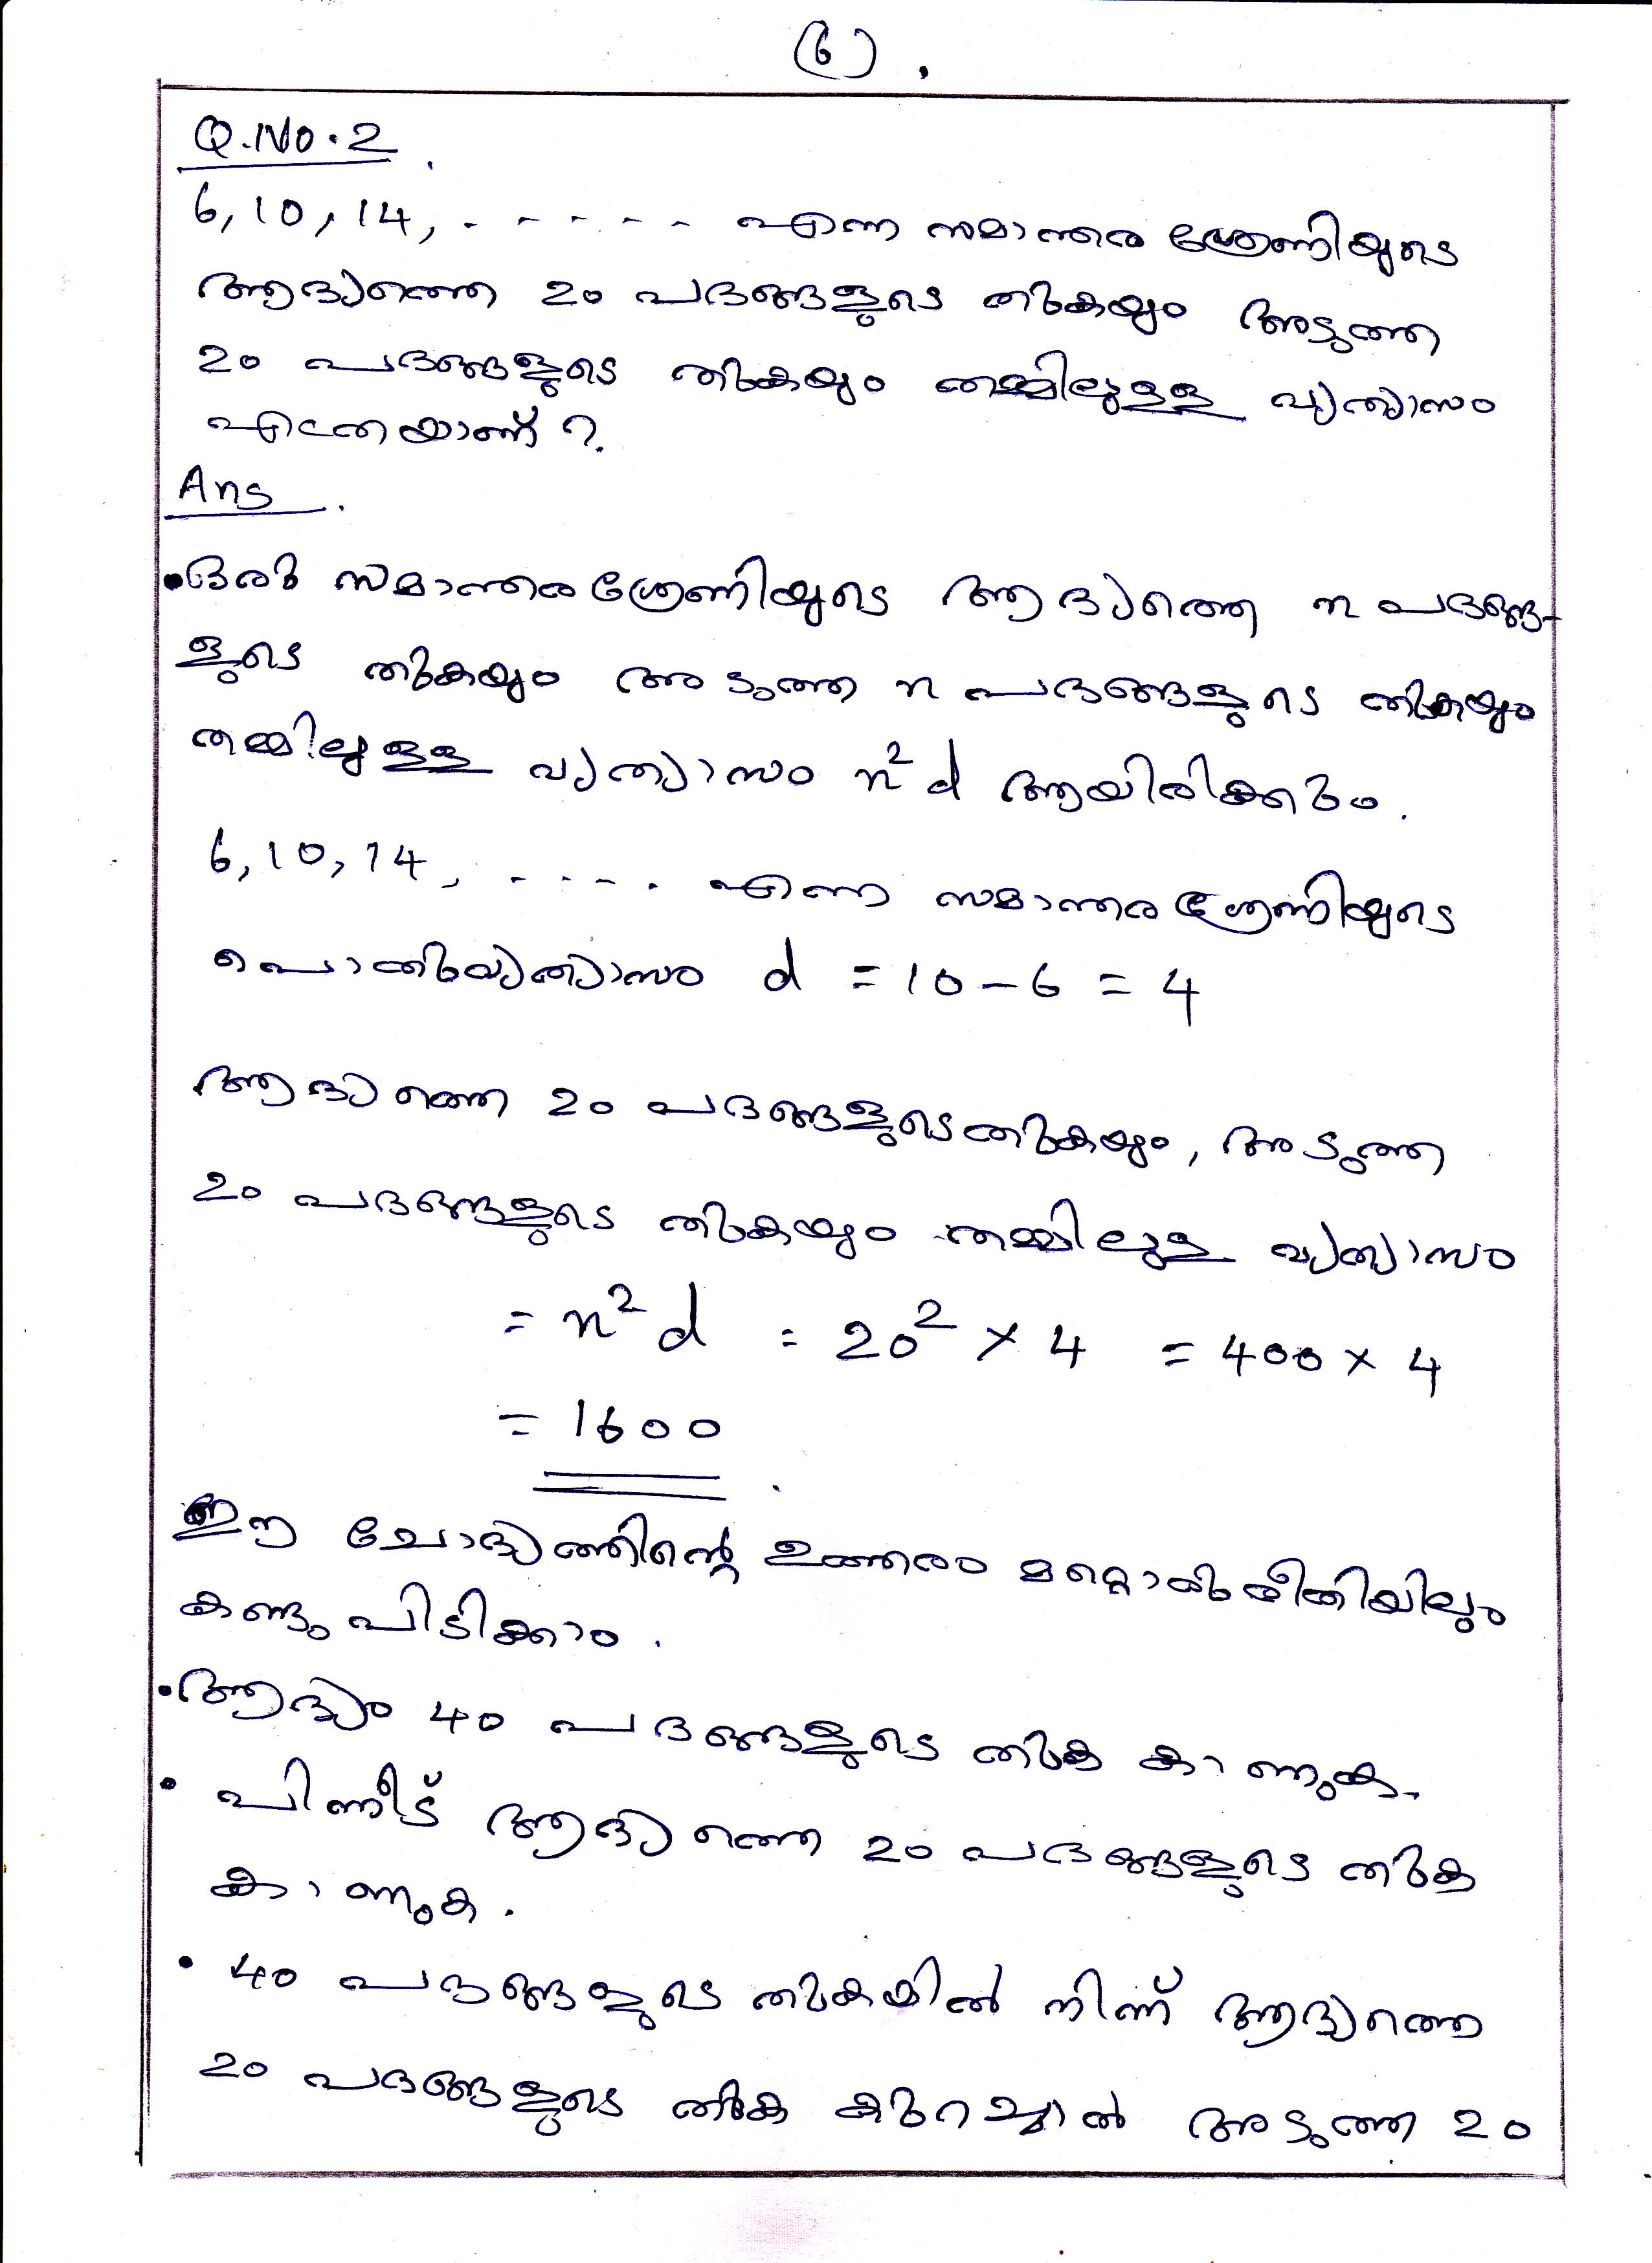 (6).
Q.No.2.
6, 10, 14, - - - - - - എന്ന സമാന്തര ശ്രേണിയുടെ
ആദ്യത്തെ 20 പദങ്ങളുടെ തുകയും അടുത്ത
20 പദങ്ങളുടെ തുകയും തമ്മിലുള്ള വ്യത്യാസം
എത്രയാണ് ?.
Ans.
•ഒരു സമാന്തര ശ്രേണിയുടെ ആദ്യത്തെ n പദങ്ങ-
ളുടെ തുകയും അടുത്ത n പദങ്ങളുടെ തുകയും
തമ്മിലുള്ള വ്യത്യാസം n²d ആയിരിക്കും.
6, 10, 14, - - - - . എന്ന സമാന്തര ശ്രേണിയുടെ
പൊതുവ്യത്യാസം d = 10 - 6 = 4
ആദ്യത്തെ 20 പദങ്ങളുടെ തുകയും, അടുത്ത
20 പദങ്ങളുടെ തുകയും തമ്മിലുള്ള വ്യത്യാസം
= n²d = 20² × 4 = 400 × 4
= 1600.
ഈ ചോദ്യത്തിന്റെ ഉത്തരം മറ്റൊരു രീതിയിലും
കണ്ടുപിടിക്കാം.
•ആദ്യം 40 പദങ്ങളുടെ തുക കാണുക.
• പിന്നീട് ആദ്യത്തെ 20 പദങ്ങളുടെ തുക
കാണുക.
• 40 പദങ്ങളുടെ തുകയിൽ നിന്ന് ആദ്യത്തെ
20 പദങ്ങളുടെ തുക കുറച്ചാൽ അടുത്ത 20